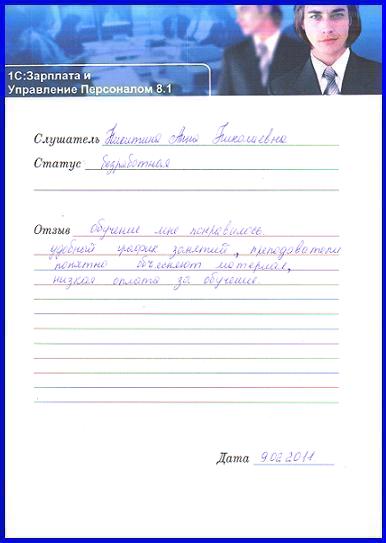 1С:Зарплата и
Управление Персоналом 8.1
Слушатель Никитина Анна Николаевна
Статус безработная
Отзыв Обучение мне понравилось.
удобный график занятий, преподаватели
понятно объесняют материал,
низкая оплата за обучение.
Дата 9.02.2011